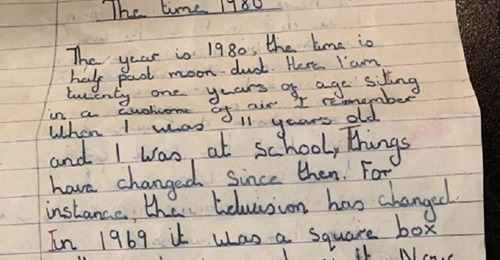 The time 1980
The year is 1980, the time is
half past moon-dust. Here I'am
twenty one years of age siting
in a of air I remember
When I was 11 years old
and I was at school, Things
have changed since then. For
instance, the television has changed.
In 1969 it was a square box
it Now